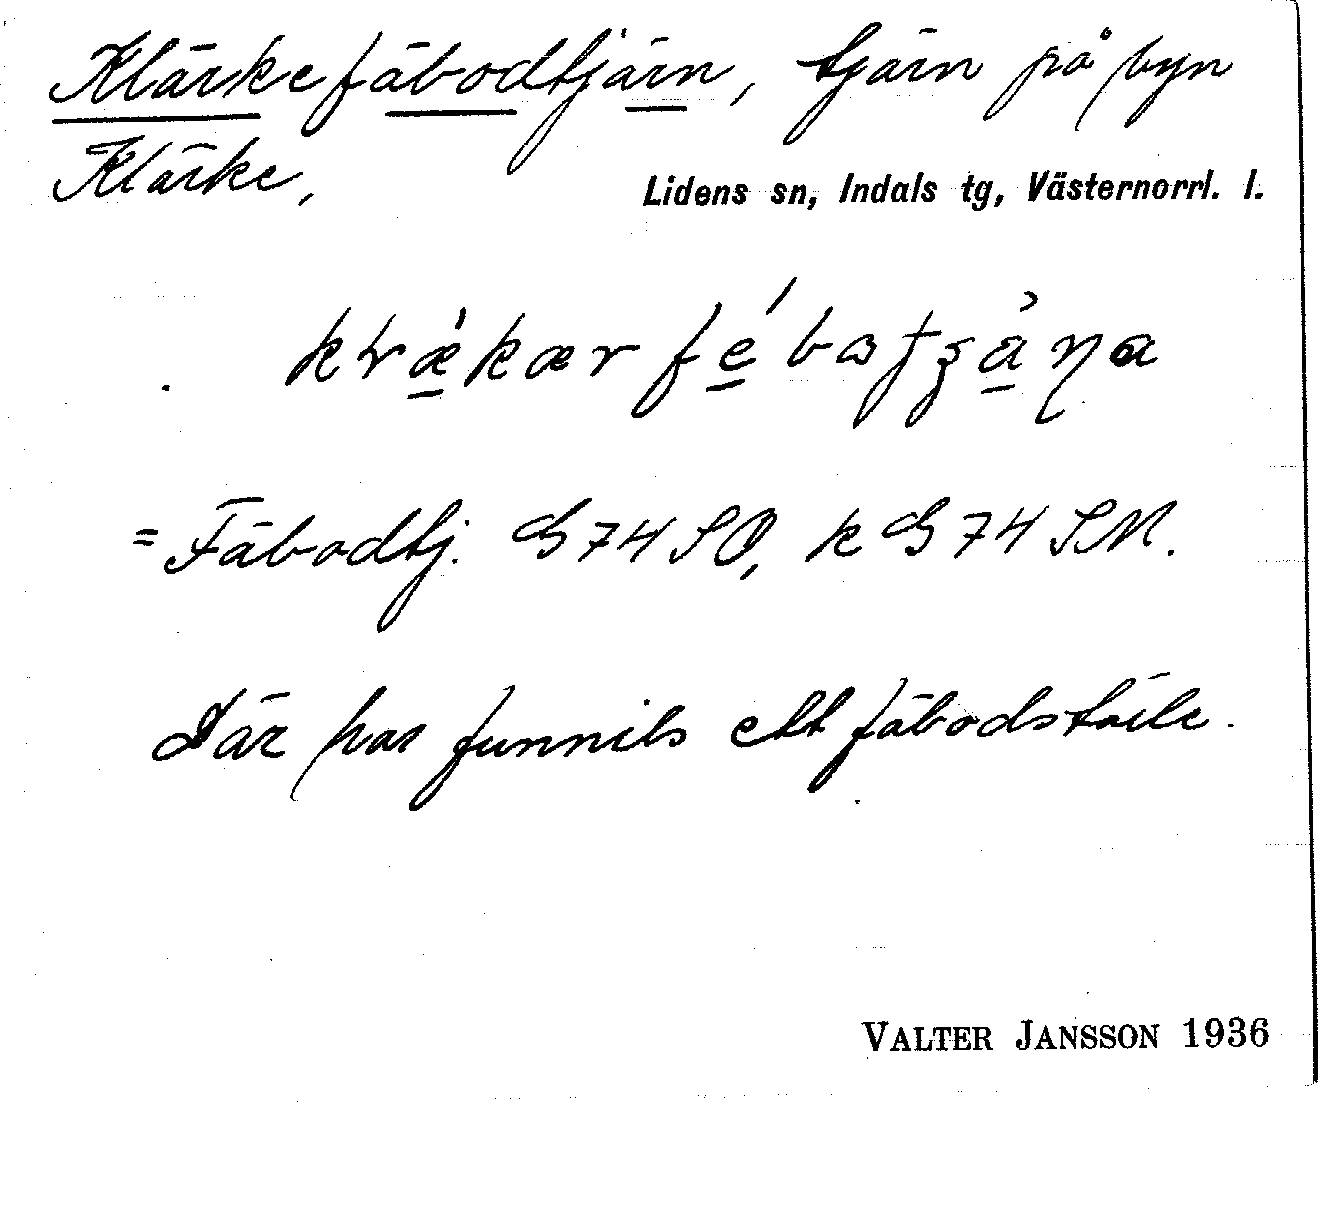 Klärkefäbodtjärn, tjärn på byn
Klärke,
Lidens sn, Indals tg, Västernorrl. l.
= Fäbodtj. G 74 SO, k G 74 SM.
Där har funnits ett fäbodställe.
VALTER JANSSON 1936